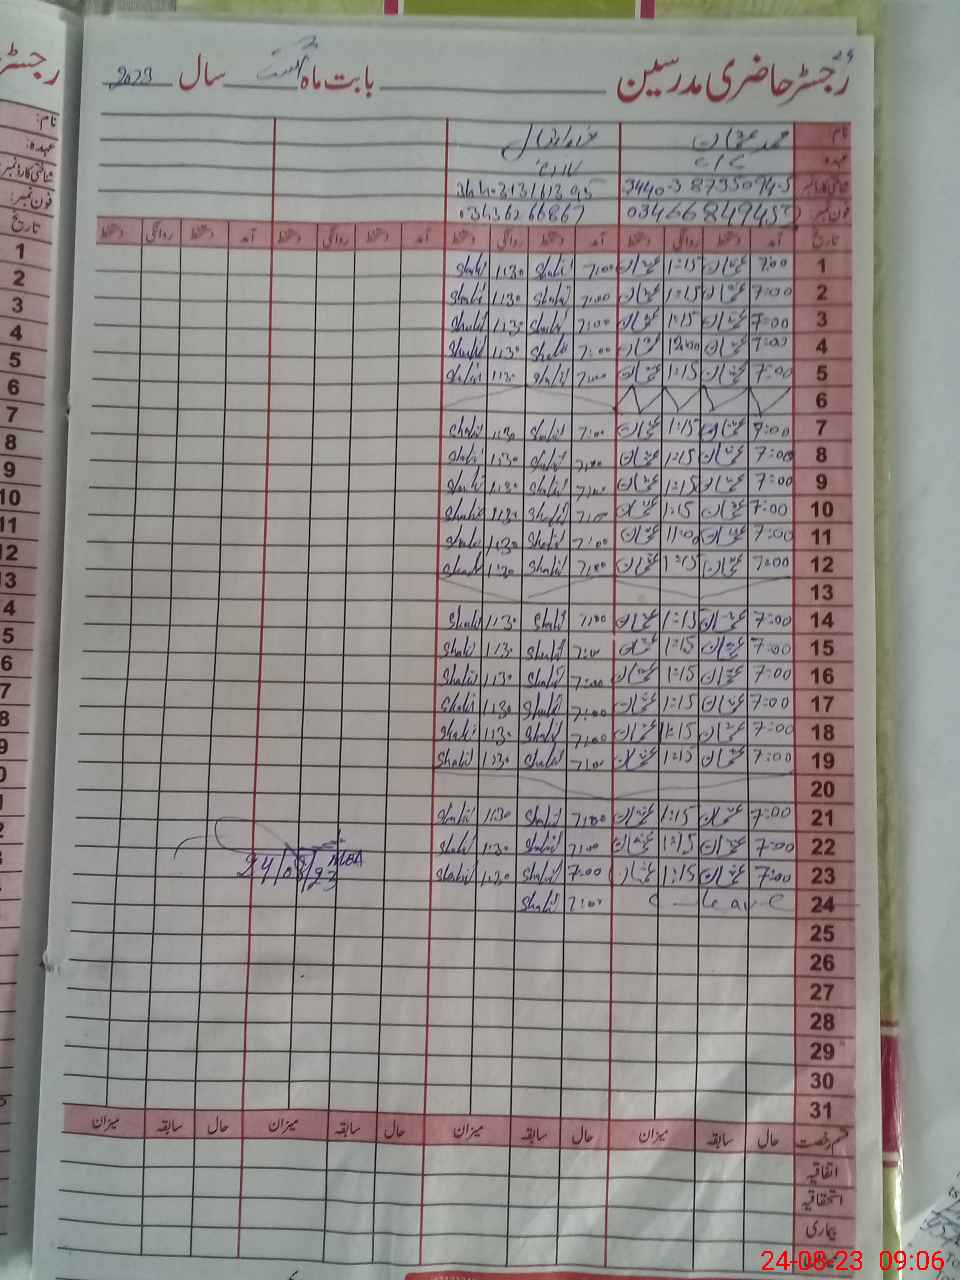 رجسٹر حاضری مدرسین بابت ماہ اگست سال 2023
24
نام محمد عثمان
عہدہ
شناختی کارڈ نمبر
فون نمبر 03436266867
تاریخ آمد دستخط روانگی دستخط آمد دستخط روانگی دستخط آمد دستخط روانگی دستخط آمد دستخط روانگی دستخط
1 7:00 عثمان 1:15 عثمان 7:00 Shahid 1:30 Shahid
2 7:00 عثمان 1:15 عثمان 7:00 Shahid 1:30 Shahid
3 7:00 عثمان 1:15 عثمان 7:00 Shahid 1:30 Shahid
4 7:00 عثمان 12:00 عثمان 7:00 Shahid 1:30 Shahid
5 7:00 عثمان 1:15 عثمان 7:00 Shahid 1:30 Shahid
6
7 7:00 عثمان 1:15 عثمان 7:00 Shahid 1:30 Shahid
8 7:00 عثمان 1:15 عثمان 7:00 Shahid 1:30 Shahid
9 7:00 عثمان 1:15 عثمان 7:00 Shahid 1:30 Shahid
10 7:00 عثمان 1:15 عثمان 7:00 Shahid 1:30 Shahid
11 7:00 عثمان 11:00 عثمان 7:00 Shahid 1:30 Shahid
12 7:00 عثمان 1:15 عثمان 7:00 Shahid 1:30 Shahid
13
14 7:00 عثمان 1:15 عثمان 7:00 Shahid 1:30 Shahid
15 7:00 عثمان 1:15 عثمان 7:00 Shahid 1:30 Shahid
16 7:00 عثمان 1:15 عثمان 7:00 Shahid 1:30 Shahid
17 7:00 عثمان 1:15 عثمان 7:00 Shahid 1:30 Shahid
18 7:00 عثمان 1:15 عثمان 7:00 Shahid 1:30 Shahid
19 7:00 عثمان 1:15 عثمان 7:00 Shahid 1:30 Shahid
20
21 7:00 عثمان 1:15 عثمان 7:00 Shahid 1:30 Shahid
22 7:00 عثمان 1:15 عثمان 7:00 Shahid 1:30 Shahid
23 7:00 عثمان 1:15 عثمان 7:00 Shahid 1:30 Shahid
MEA
24/08/23
24 C - Leave 7:00 Shahid
25
26
27
28
29
30
31
قسم رخصت حال سابقہ میزان حال سابقہ میزان حال سابقہ میزان حال سابقہ میزان
اتفاقیہ
استحقاقیہ
بیماری
24-08-23 09:06